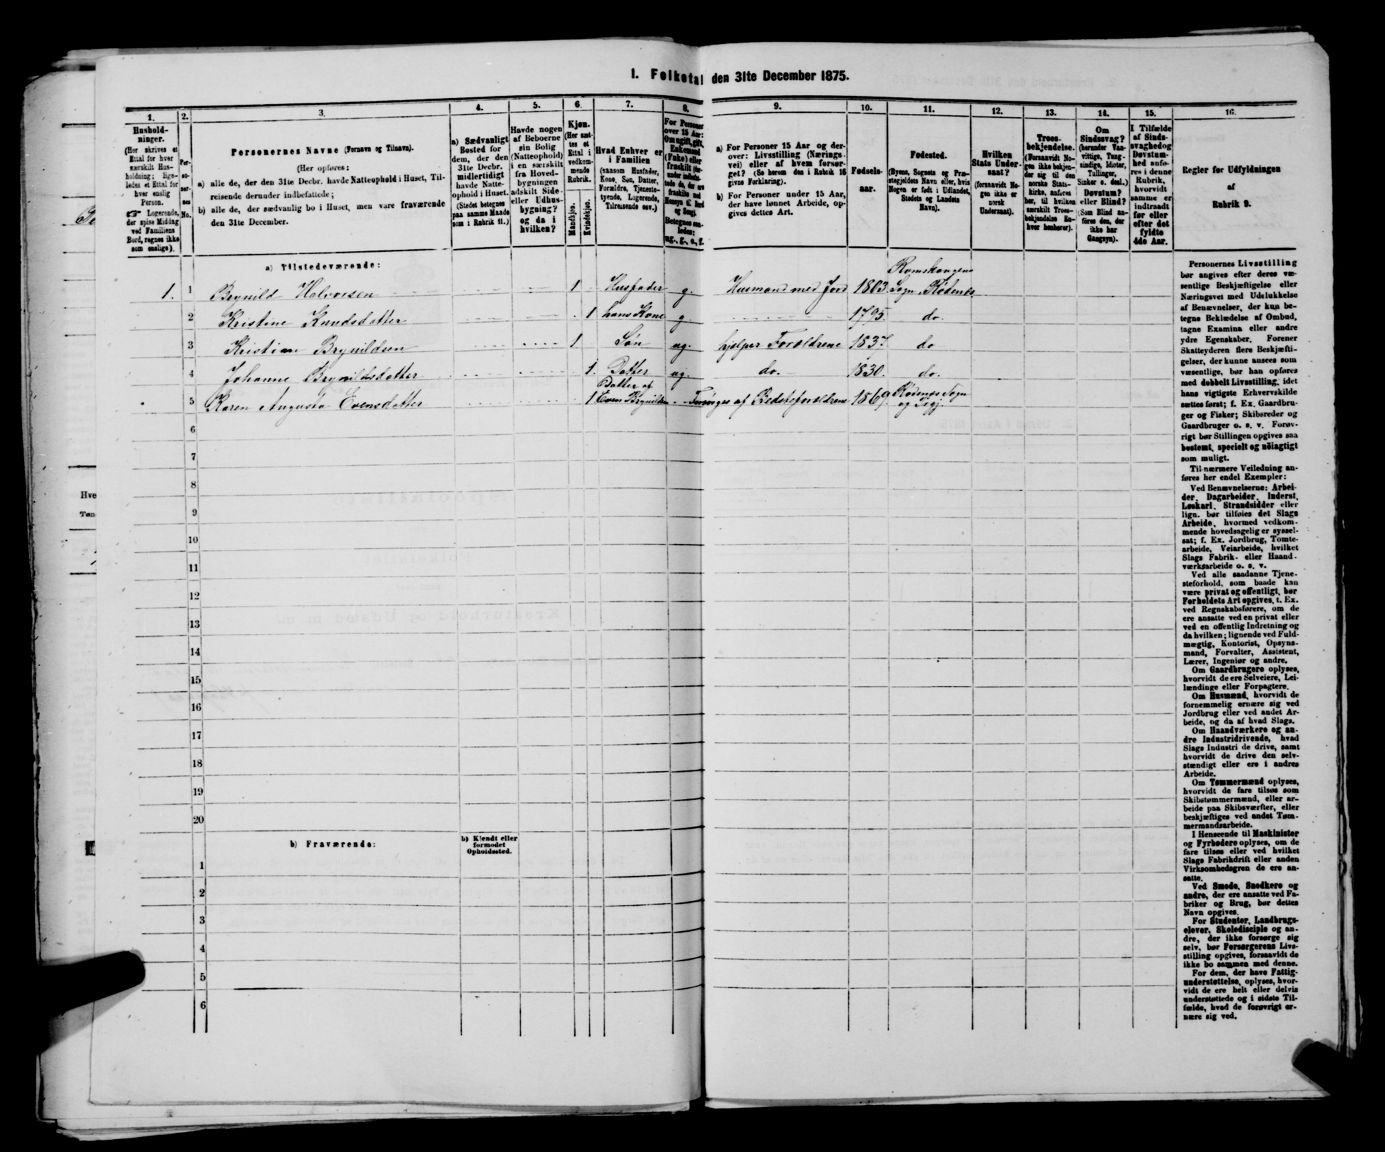 1. Folketal den 31te December 1875.
1. 2. 3. 4. 5. 6. 7. 8. 9. 10. 11. 12. 13. 14. 15. 16.
Hushold-
ninger.
(Her skrives et
Ettal for hver
særskilt Hus-
holdning; lige-
ledes et Ettal for
hver enslig
Person.
Logerende,
der spise Middag
ved Familiens
Bord, regnes ikke
som enslige).
Per-
so-
ner-
nes
No.
Personernes Navne (Fornavn og Tilnavn).
(Her opføres:
a) alle de, der den 31te Decbr. havde Natteophold i Huset, Til-
reisende derunder indbefattede;
b) alle de, der sædvanlig bo i Huset, men vare fraværende
den 31te December.
a) Sædvanligt
Bosted for
dem, der den
31te Decbr.
midlertidigt
havde Natte-
ophold i Huset.
(Stedet betegnes
paa samme Maade
som i Rubrik 11.)
Havde nogen
af Beboerne
sin Bolig
(Natteophold)
i en særskilt
fra Hoved-
bygningen
adskilt Side-
eller Udhus-
bygning?
og da i
hvilken?
Kjøn.
(Her sæt-
tes et
Ettal i
vedkom-
mende
Rubrik.
Mandkjøn.
Kvindekjøn.
Hvad Enhver er
i Familien
(saasom Husfader,
Kone, Søn, Datter,
Forældre, Tjeneste-
tyende, Logerende,
Tilreisende osv.)
For Personer
over 15 Aar:
Om ugift, gift,
Enkemand
(Enke) eller
fraskilt
a) For Personer 15 Aar og der-
over: Livsstilling (Nærings-
vei) eller af hvem forsør-
get? (Se herom den i Rubrik 16
givne Forklaring).
b) For Personer under 15 Aar,
der have lønnet Arbeide, op-
gives dettes Art.
Fødsels-
aar.
Fødested.
(Byens, Sognets og Præ-
stegjeldets Navn eller, hvis
Nogen er født i Udlandet,
Stedets og Landets
Navn).
Hvilken
Stats Under-
saat?
(forsaavidt No-
gen ikke er
norsk
Undersaat).
Troes-
bekjendelse.
(Forsaavidt No-
gen ikke bekjen-
der sig til den
norske Stats-
kirke, anføres
her, til hvilken
særskilt Troes-
bekjendelse En-
hver henhører).
Om
Sindssvag?
(herunder Van-
vittige, Tung-
sindige, Idioter,
Tullinger,
Sinker o. desl.)
Døvstum?
eller Blind?
(Som Blind an-
føres den, der
ikke har
Gangsyn).
I Tilfælde
af Sinds-
svaghed og
Døvstum-
hed anfø-
res i denne
Rubrik,
hvorvidt
samme er
indtraadt
før eller
efter det
fyldte
4de Aar.
Regler for Udfyldningen
af
Rubrik 9.
a) Tilstedeværende:
1. 1 Brynild Halvorsen 1 Husfader g. Husmand med Jord 1803 Romskougens Sogn, Rødenes
2 Kristine Knudsdatter 1 hans Kone g 1795. do.
3 Kristian Brynildsen 1 Søn ug. hjælper Forældrene 1837. do
4 Johanne Brynildsdatter 1. Datter ug. do. 1830. do.
5 Karen Augusta Evensdatter 1 Datter af Even Brynildsen Forsørges af Bedsteforældrene 1869. Rødenes Sogn og Prgj.
6
7
8
9
10
11
12
13
14
15
16
17
18
19
20
b) Fraværende:
b) Kjendt eller
formodet
Opholdssted.
1
2
3
4
5
6
Personernes Livsstilling
bør angives efter deres væ-
sentlige Beskjæftigelse eller
Næringsvei med Udelukkelse
af Benævnelser, der kun be-
tegne Beklædelse af Ombud,
tagne Examina eller andre
ydre Egenskaber. Forener
Skatteyderen flere Beskjæfti-
gelser, der kunne ansees som
væsentlige, bør han opføres
med dobbelt Livsstilling, idet
hans vigtigste Erhvervskilde
sættes først; f. Ex. Gaardbru-
ger og Fisker; Skibsreder og
Gaardbruger o. s. v. Forøv-
rigt bør Stillingen opgives saa
bestemt, specielt og nøiagtigt
som muligt.
Til nærmere Veiledning an-
føres her endel Exempler:
Ved Benævnelserne: Arbei-
der, Dagarbeider, Inderst,
Løskarl, Strandsidder eller
lign. bør tilføies det Slags
Arbeide, hvormed vedkom-
mende hovedsagelig er syssel-
sat; f. Ex. Jordbrug, Tomte-
arbeide, Veiarbeide, hvilket
Slags Fabrik- eller Haand-
værksarbeide o. s. v.
Ved alle saadanne Tjene-
steforhold, som baade kan
være privat og offentligt, bør
Forholdets Art opgives, t. Ex.
ved Regnskabsførere, om de
ere ansatte ved en privat eller
ved en offentlig Indretning og
da hvilken; lignende ved Fuld-
mægtig, Kontorist, Opsyns-
mand, Forvalter, Assistent,
Lærer, Ingeniør og andre.
Om Gaardbrugere oplyses,
hvorvidt de ere Selveiere, Lei-
lændinge eller Forpagtere.
Om Husmænd, hvorvidt de
fornemmelig ernære sig ved
Jordbrug eller ved andet Ar-
beide, og da af hvad Slags.
Om Haandværkere og an-
dre Industridrivende, hvad
Slags Industri de drive, samt
hvorvidt de drive den selv-
stændigt eller ere i andres
Arbeide.
Om Tømmermænd oplyses,
hvorvidt de fare tilsøs som
Skibstømmermænd, eller ar-
beide paa Skibsværfter, eller
beskjæftiges ved andet Tøm-
mermandsarbeide.
I Henseende til Maskinister
og Fyrbødere oplyses, om de
fare tilsøs eller ved hvilket
Slags Fabrikdrift eller anden
Virksomhedsgren de ere an-
satte.
Ved Smede, Snedkere og
andre, der ere ansatte ved Fa-
briker og Brug, bør dettes
Navn opgives.
For Studenter, Landbrugs-
elever, Skoledisciple og an-
dre, der ikke forsørge sig
selv, bør Forsørgerens Livs-
stilling opgives, forsaavidt de
ikke bo sammen med denne.
For dem, der have Fattig-
understøttelse, oplyses, hvor-
vidt de ere helt eller delvis
understøttede og i sidste Til-
fælde, hvad de forøvrigt er-
nære sig ved.